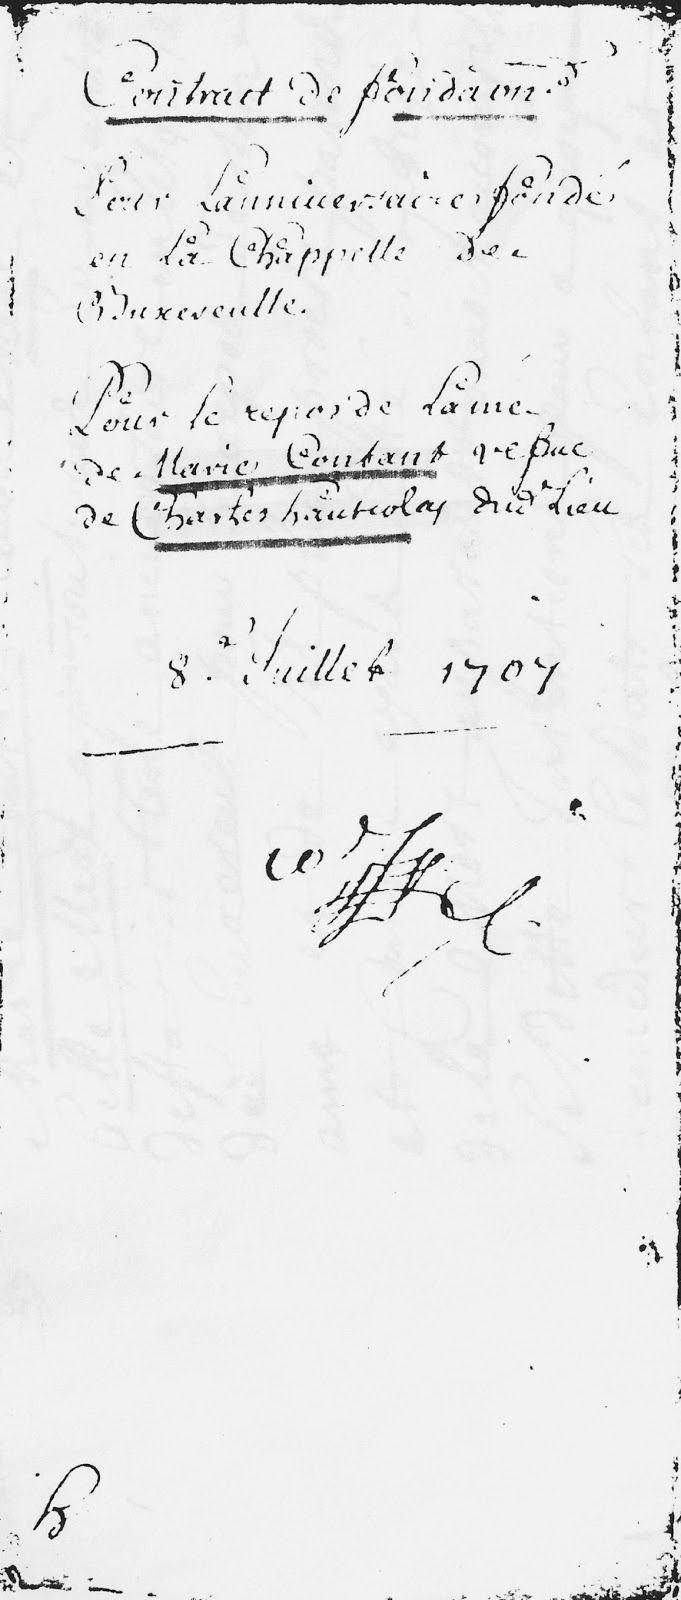 Contract de fondaon
Pour Lanniversaire fondé
en La Chappelle de
Buxereulle.
Pour le repos de Lame
de Marie Contant vefue
de Charles hautcolas dud. Lieu
8e Juillet 1707